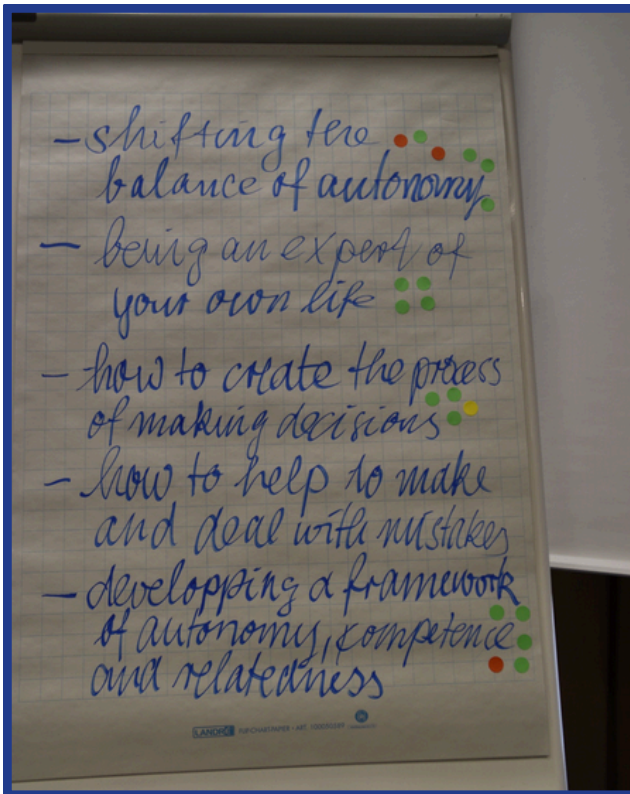 - shifting the
balance of autonomy
- being an expert of
your own life
- how to create the process
of making decisions
- how to help to make
and deal with mistakes
- developping a framework
of autonomy, competence
and relatedness
LANDRÉ FLIPCHARTPAPER - ART.